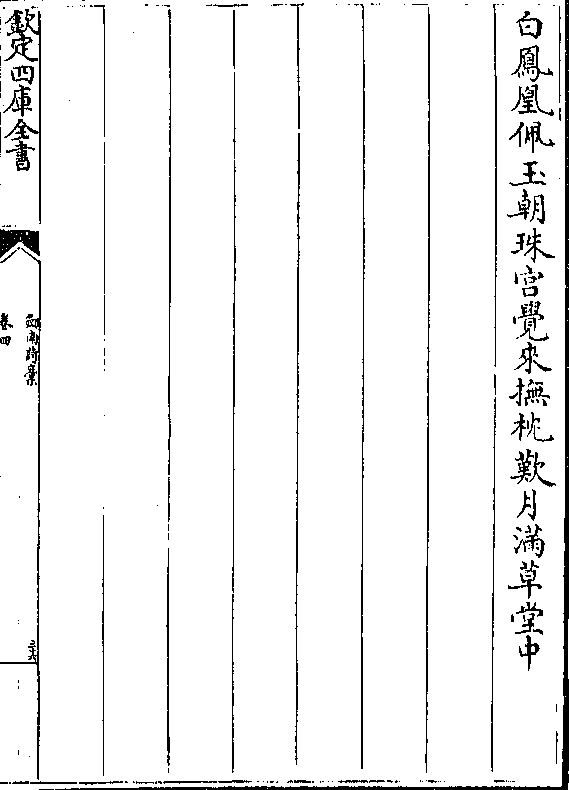 白鳳凰佩玉朝珠宮覺來撫枕歎月滿草堂中
欽定四庫全書
劍南詩稾
卷四